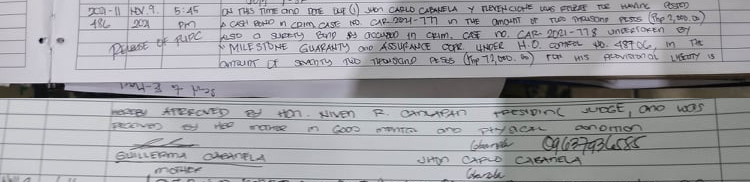 2021-11 NOV 9. 5:45 ON THIS TIME AND DATE ONE (1) JHON CARLO CABANELA Y WAS FREED FOR HAVING POSTED
486 2021 PM A CASH BOND IN CRIM. CASE NO. CAR-2021-777 IN THE AMOUNT OF TWO THOUSAND PESOS (Php 2,000.00)
RELEASE OF ALSO A SURETY BOND BY ACCUSED IN CRIM. CASE NO. CAR 2021-778 UNDERTAKEN BY
MILESTONE GUARANTY AND ASSURANCE CORP. UNDER H.O. CONTROL NO. 48706, IN THE
AMOUNT OF SEVENTY TWO THOUSAND PESOS (Php 72,000.00) FOR HIS PROVISIONAL LIBERTY IS
HEREBY APPROVED BY HON. NIVEN R. CANLAPAN PRESIDING JUDGE, AND WAS
RECEIVED BY HER MOTHER IN GOOD MENTAL AND PHYSICAL CONDITION
09637936585
GUILLERMA CABANELA JHON CARLO CABANELA
MOTHER